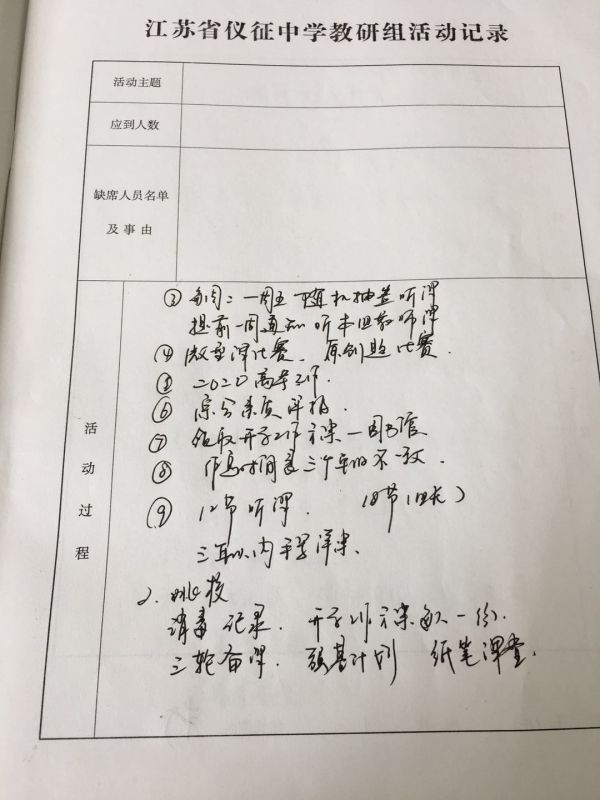 江苏省仪征中学教研组活动记录
活动主题
应到人数
缺席人员名单
及事由
活动过程
③ 每周二一周五 随机抽查听课
提前一周通知 听本组教师课
④ 微型课比赛. 原创题比赛.
⑤ 2020高考工作.
⑥
⑦ 领取开学工作方案—图书馆
⑧ 作息时间表三个年级不一致.
⑨ 12节听课. 18节(组长)
三年以内手写详案.
2.
消毒记录. 开学工作方案每人一份.
三轮备课. 强基计划 纸笔课堂.